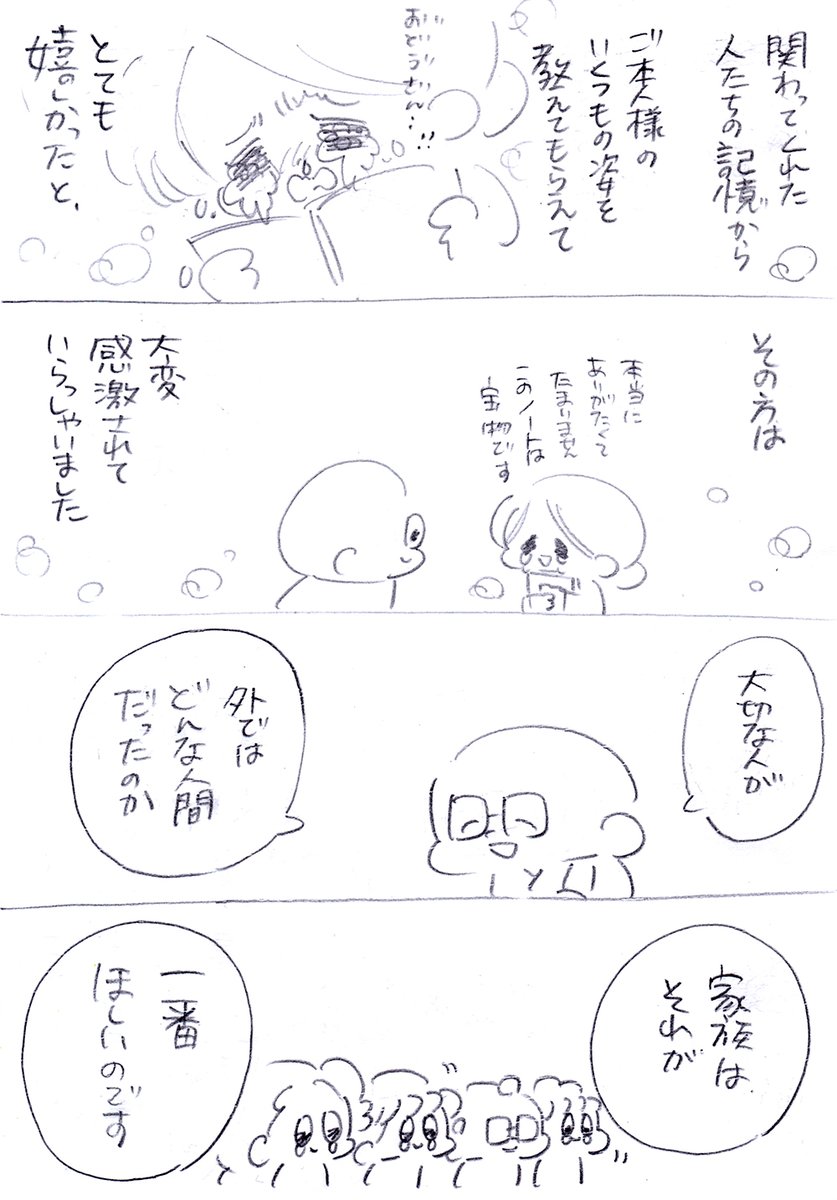 関わってくれた
人たちの記憶から
ご本人様の
いくつもの姿を
教えてもらえて
おどゔざん…!!
とても
嬉しかったと、
その方は
本当に
ありがたくて
たまりません
このノートは
宝物です
大変
感激されて
いらっしゃいました
大切な人が
外では
どんな人間
だったのか
家族は
それが
一番
ほしいのです